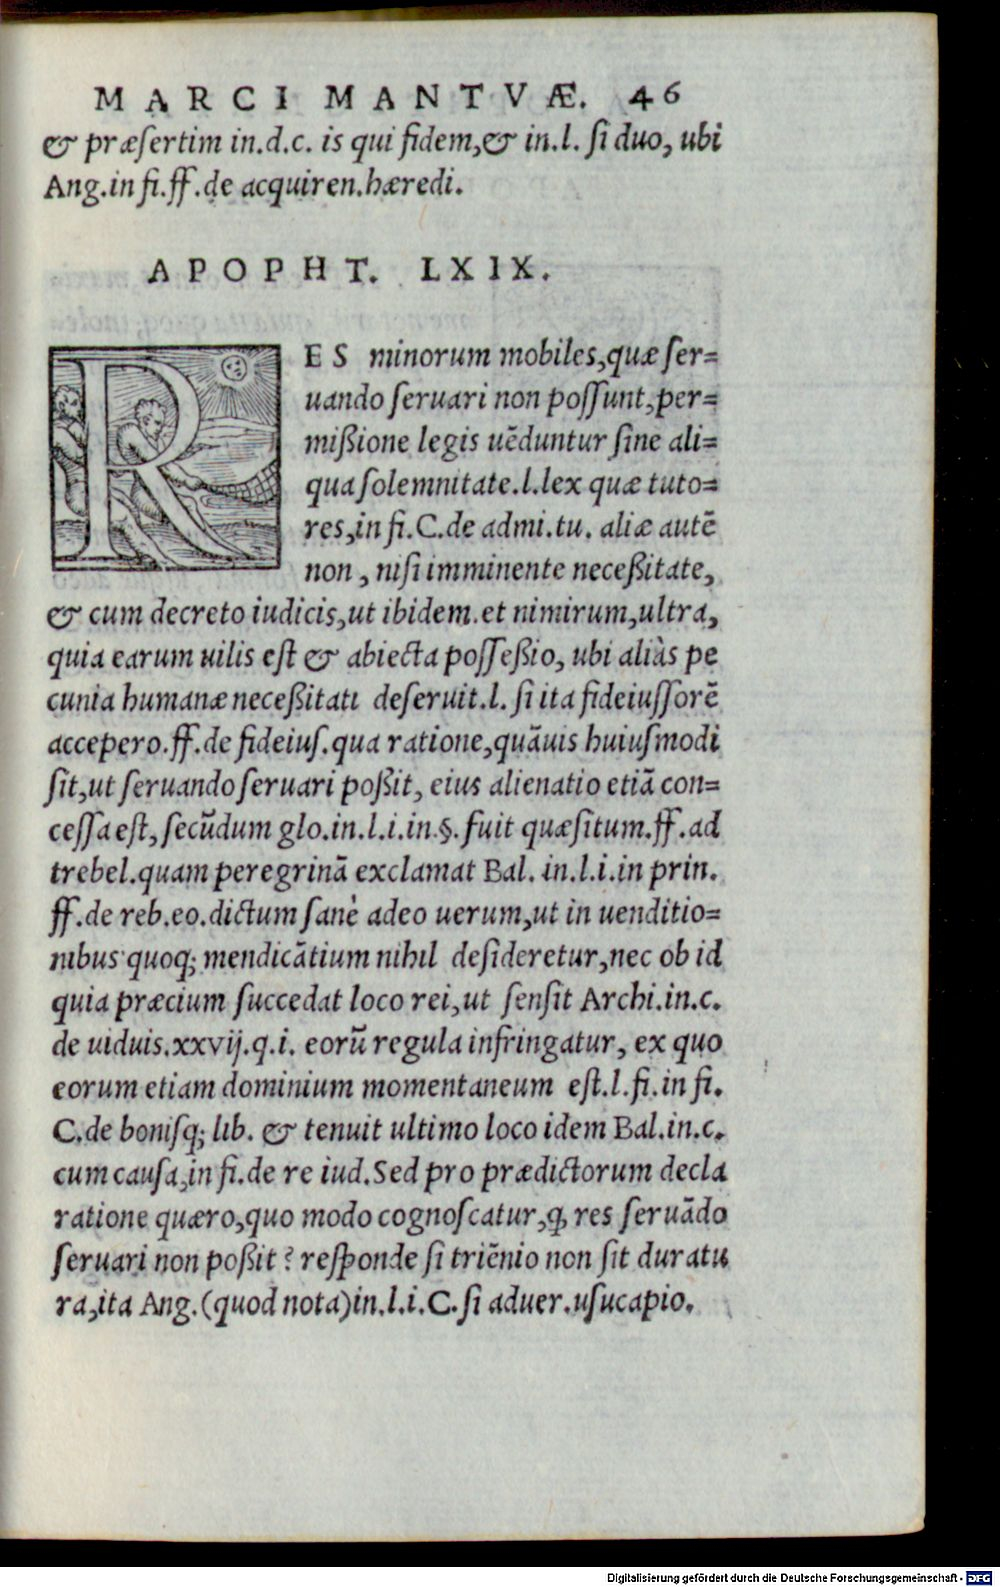 MARCI MANTVÆ. 46
& præſertim in.d.c. is qui fidem,& in.l. ſi duo, ubi
Ang.in fi.ff.de acquiren.hæredi.
APOPHT. LXIX.
RES minorum mobiles,quæ ſer=
uando ſeruari non poſſunt,per=
mißione legis uẽduntur ſine ali=
qua ſolemnitate.l.lex quæ tuto=
res,in fi.C.de admi.tu. aliæ autẽ
non, niſi imminente neceßitate,
& cum decreto iudicis,ut ibidem.et nimirum,ultra,
quia earum uilis eſt & abiecta poſſeßio, ubi aliàs pe
cunia humanæ neceßitati deſeruit.l. ſi ita fideiuſſorẽ
accepero.ff.de fideiuſ.qua ratione,quãuis huiuſmodi
ſit,ut ſeruando ſeruari poßit, eius alienatio etiã con=
ceſſa eſt, ſecũdum glo.in.l.i.in.§.fuit quæſitum.ff.ad
trebel.quam peregrinã exclamat Bal. in.l.i.in prin.
ff.de reb.eo.dictum ſanè adeo uerum,ut in uenditio=
nibus quoq; mendicãtium nihil deſideretur,nec ob id
quia præcium ſuccedat loco rei,ut ſenſit Archi.in.c.
de uiduis.xxvij.q.i. eorũ regula infringatur, ex quo
eorum etiam dominium momentaneum eſt.l.fi.in fi.
C.de boniſq; lib. & tenuit ultimo loco idem Bal.in.c.
cum cauſa,in fi.de re iud.Sed pro prædictorum decla
ratione quæro,quo modo cognoſcatur,ꝙ res ſeruãdo
ſeruari non poßit? reſponde ſi triẽnio non ſit duratu
ra,ita Ang.(quod nota)in.l.i.C.ſi aduer.uſucapio.
Digitalisierung gefördert durch die Deutsche Forschungsgemeinschaft - DFG